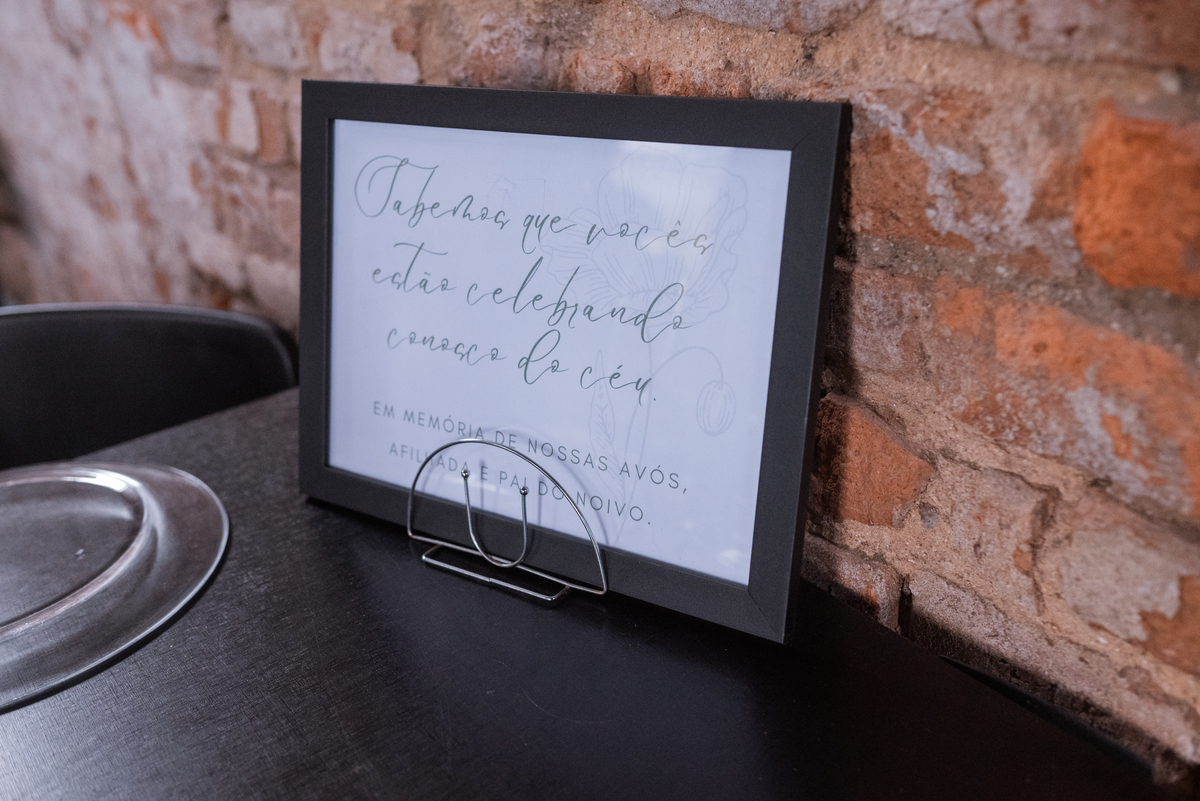 Sabemos que vocês
estão celebrando
conosco do céu.
EM MEMÓRIA DE NOSSAS AVÓS,
AFILHADA E PAI DO NOIVO.